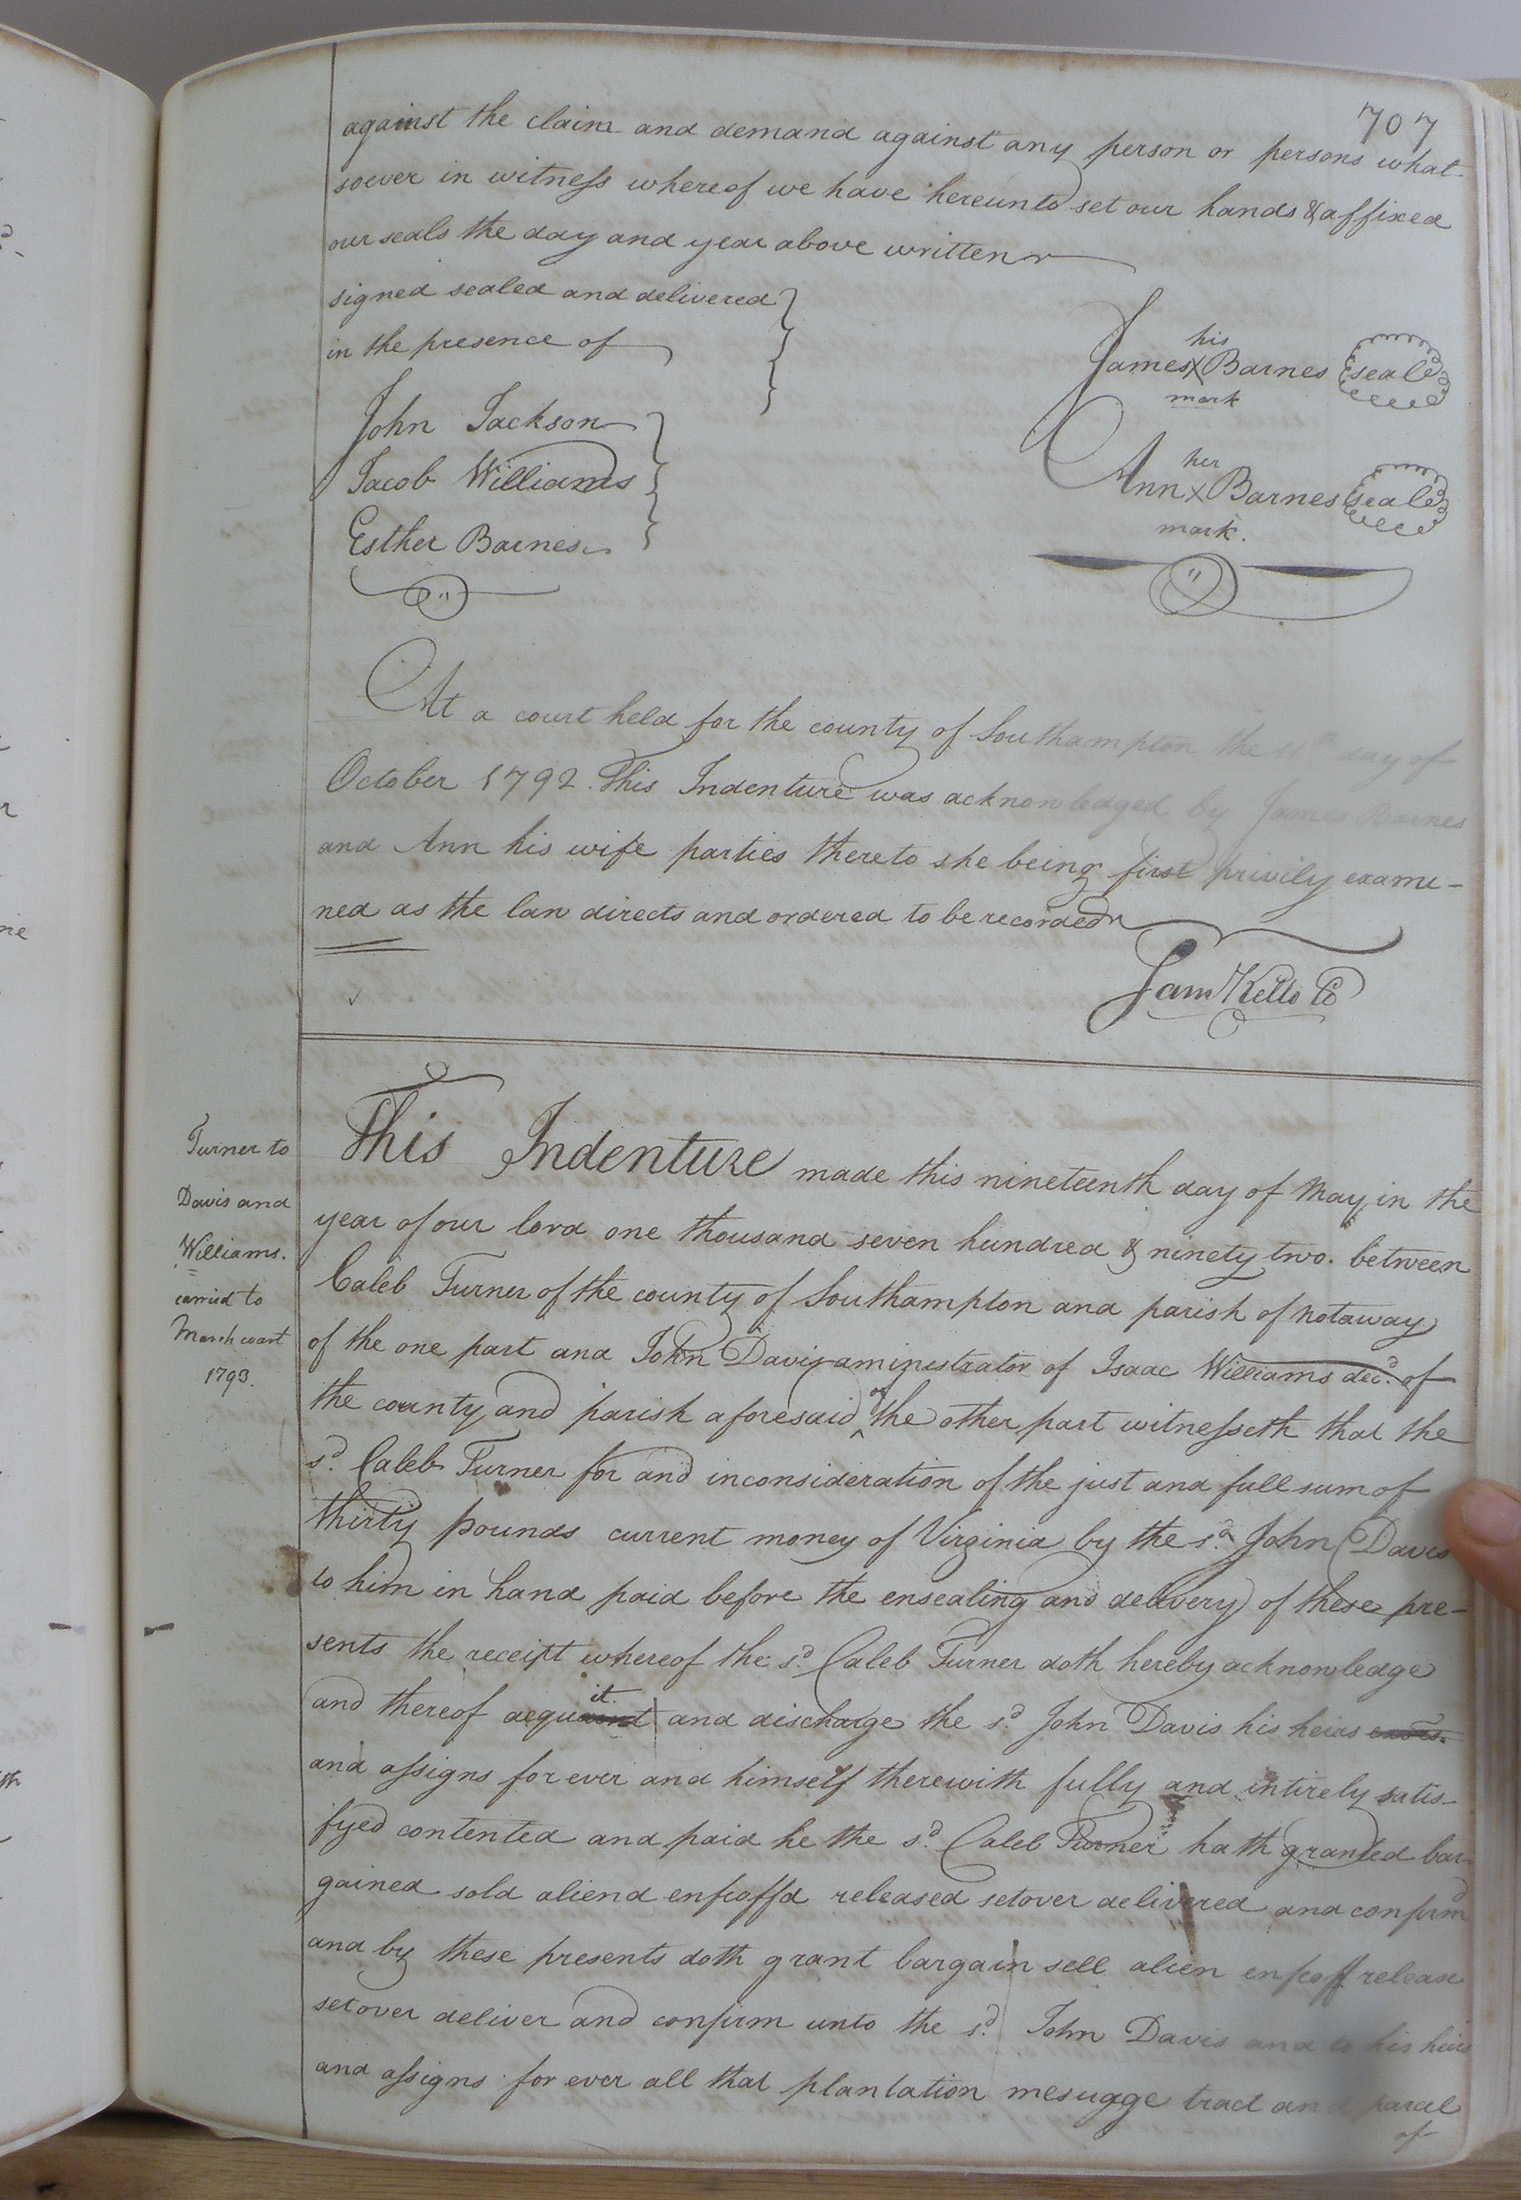 707
against the claim and demand against any person or persons what-
soever in witness whereof we have hereunto set our hands & affixed
our seals the day and year above written
signed sealed and delivered
in the presence of
his
James X Barnes seal
mark
John Jackson
Jacob Williams
Esther Barnes
her
Ann X Barnes seal
mark.
At a court held for the county of Southampton the 11th day of
October 1792. This Indenture was acknowledged by James Barnes
and Ann his wife parties thereto she being first privily exami-
ned as the law directs and ordered to be recorded
Sam Kello Cl
Turner to
Davis and
Williams.
carried to
March court
1793.
This Indenture made this nineteenth day of May in the
year of our lord one thousand seven hundred & ninety two. between
Caleb Turner of the county of Southampton and parish of notaway
of the one part and John Davis aministrator of Isaac Williams decd. of
the county and parish aforesaid of the other part witnesseth that the
sd. Caleb Turner for and inconsideration of the just and full sum of
thirty pounds current money of Virginia by the sd. John Davis
to him in hand paid before the ensealing and delivery of these pre-
sents the receipt whereof the sd. Caleb Turner doth hereby acknowledge
and thereof acquit and discharge the sd. John Davis his heirs exors.
and assigns for ever and himself therewith fully and intirely satis-
fyed contented and paid he the sd. Caleb Turner hath granted bar-
gained sold aliend enfeoffd released setover delivered and confirmd
and by these presents doth grant bargain sell alien enfeoff release
setover deliver and confirm unto the sd. John Davis and to his heirs
and assigns for ever all that plantation mesugge tract and parcel
of